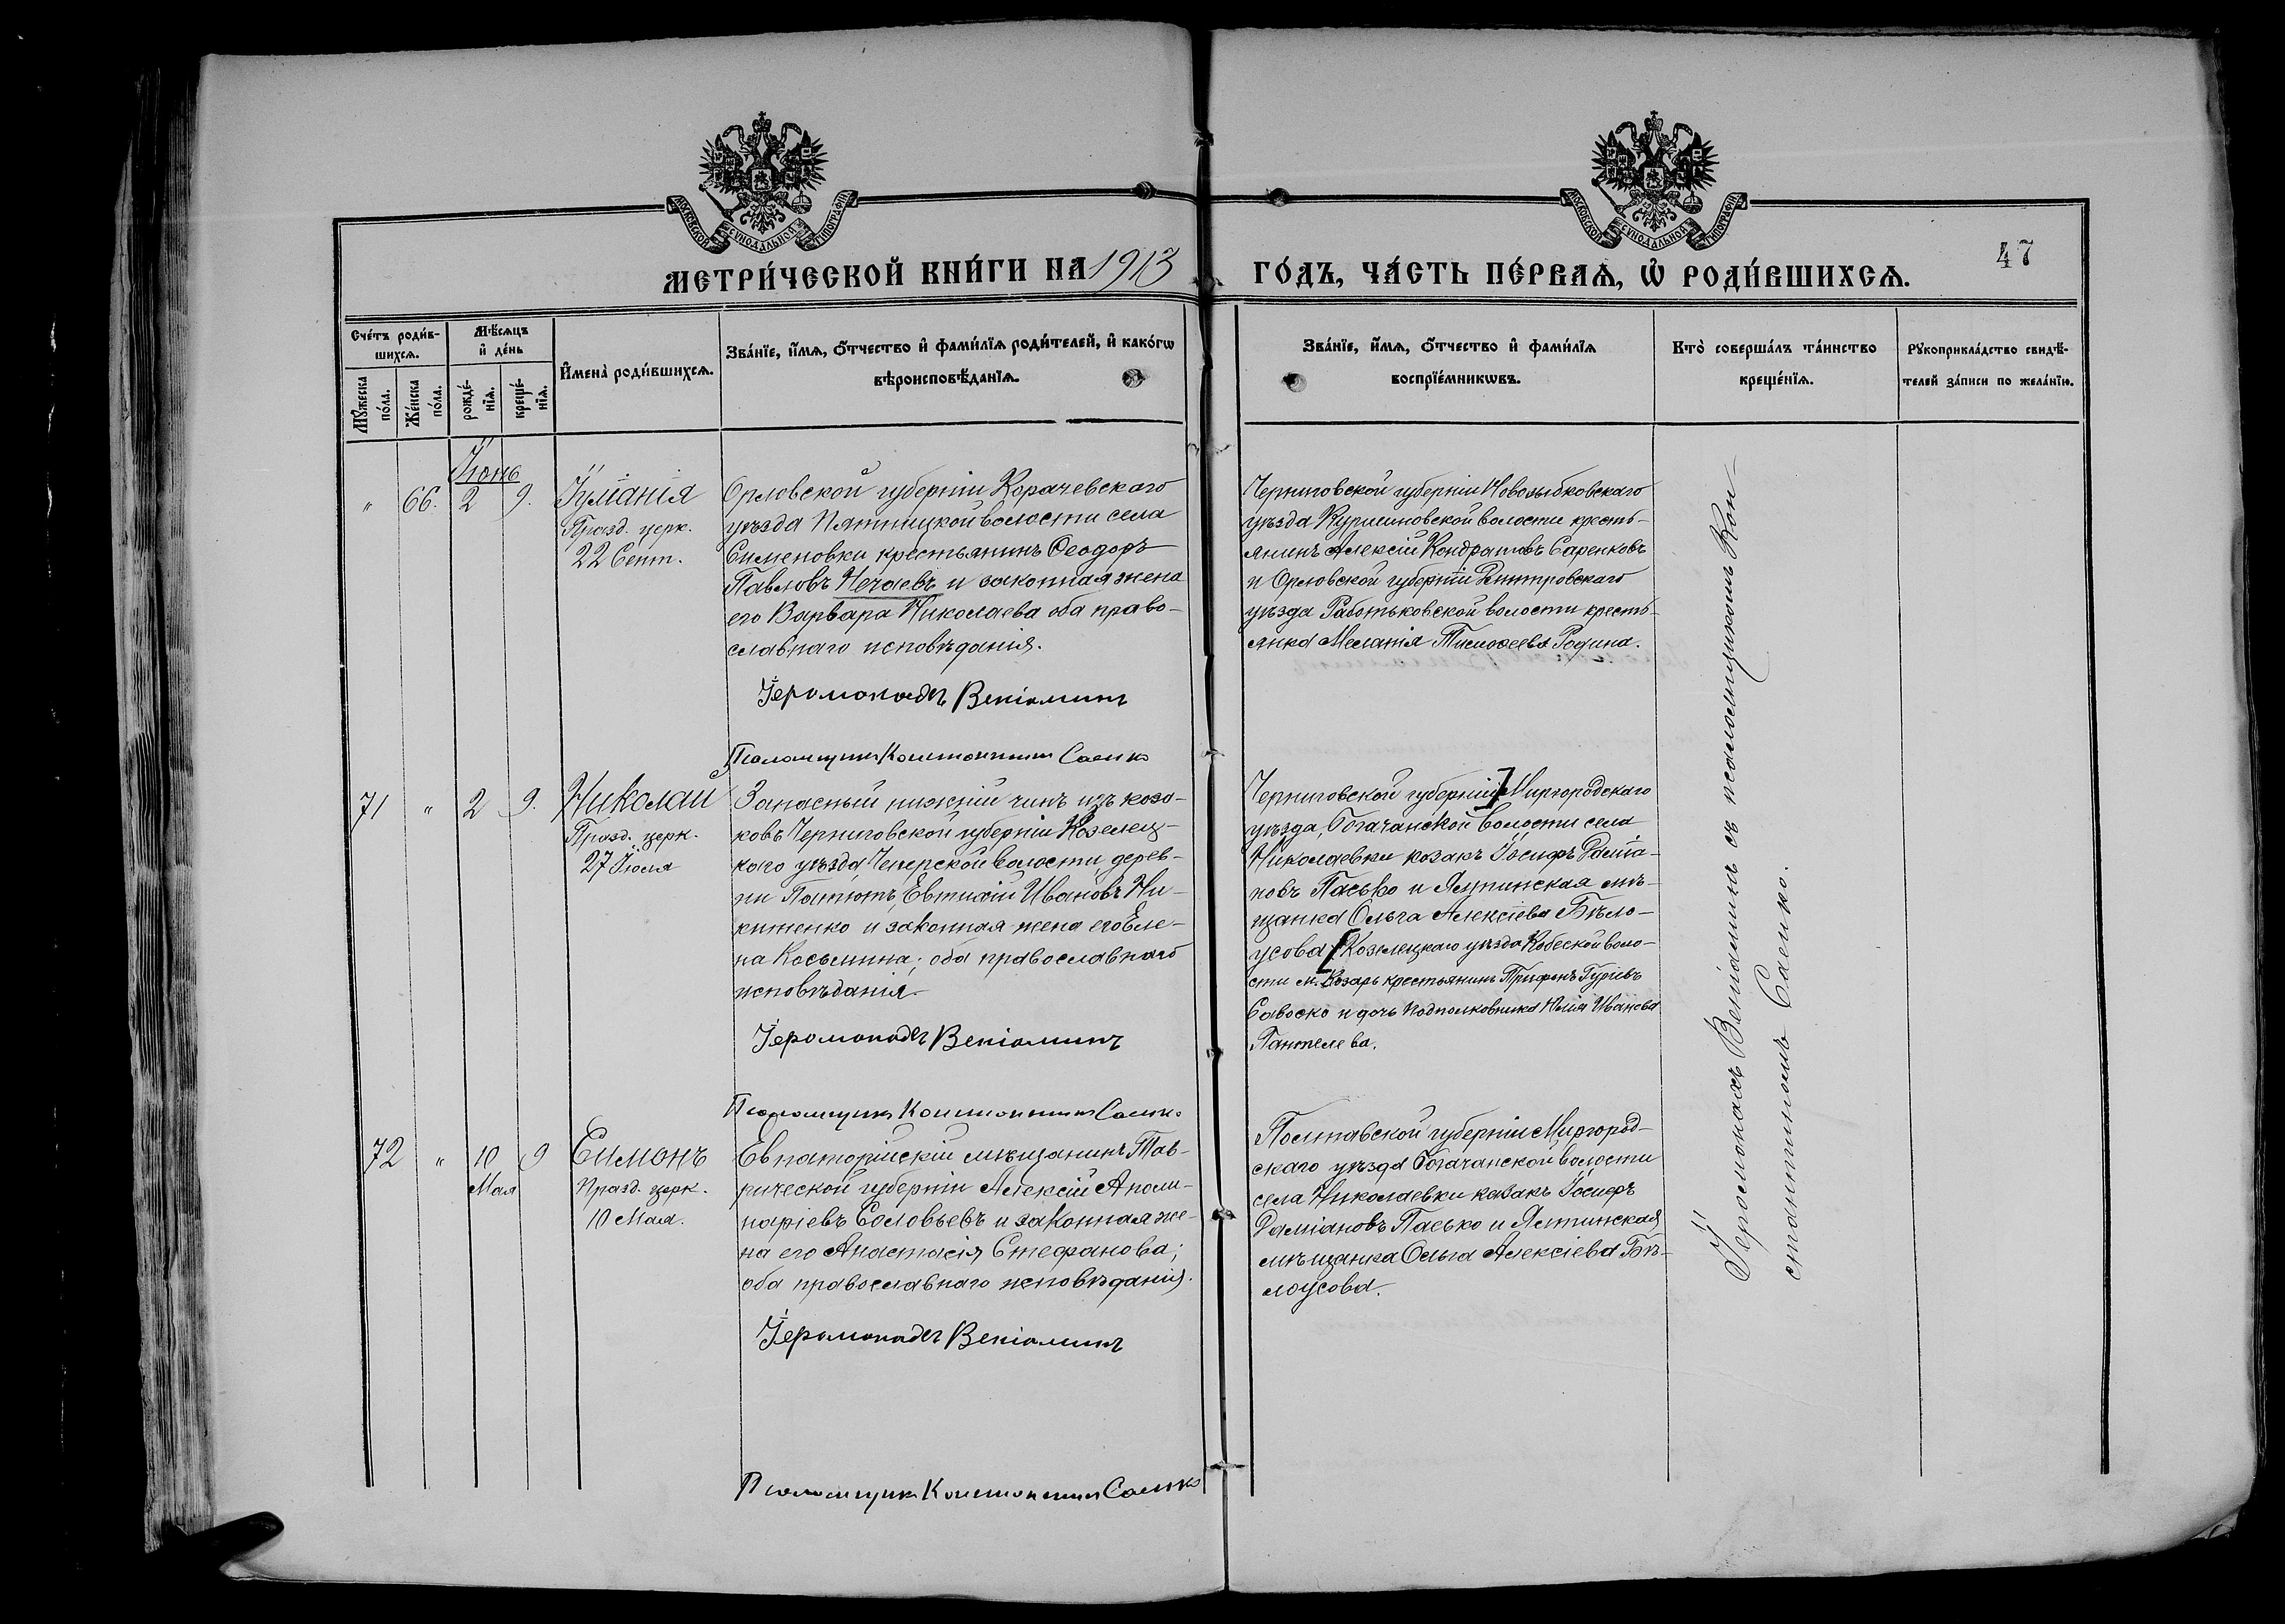 МОСКОВСКОЙ СѴНОДАЛЬНОЙ ТИПОГРАФІИ
МОСКОВСКОЙ СѴНОДАЛЬНОЙ ТИПОГРАФІИ
47
МЕТРИ́ЧЕСКОЙ КНИ́ГИ НА 1913 ГО́ДЪ, ЧА́СТЬ ПЕ́РВАѦ, Ѡ҆ РОДИ́ВШИХСѦ.
Сче́тъ роди́в-
шихсѧ.
Мꙋ́жеска
по́ла.
Же́нска
по́ла.
Мѣ́сѧцъ
и҆ де́нь
рожде́-
нїѧ.
креще́-
нїѧ.
И҆мена̀ роди́вшихсѧ.
Зва́нїе, и҆́мѧ, ѻ҆́тчество и҆ фами́лїѧ роди́телей, и҆ како́гѡ
вѣроисповѣ́данїѧ.
Зва́нїе, и҆́мѧ, ѻ҆́тчество и҆ фами́лїѧ
воспрїе́мникѡвъ.
Кто̀ соверша́лъ та́инство
креще́нїѧ.
Рꙋкоприкла́дство свидѣ́-
телей за́писи по жела́нїю.
Іюнь
" 66. 2 9.
Іуліанія
Празд. церк.
22 Сент.
Орловской губерніи Корачевскаго
уѣзда Пятницкой волости села
Сименовки крестьянинъ Ѳеодоръ
Павловъ Нечаевъ и законная жена
его Варвара Николаева оба право-
славнаго исповѣданія.
Іеромонахъ Веніаминъ
Псаломщикъ Константинъ Саенко
Черниговской губерніи Новозыбковскаго
уѣзда волости кресть-
янинъ Алексій Кондратовъ Саренковъ
и Орловской губерніи Дмитровскаго
уѣзда Работьковской волости кресть-
янка Меланія Тимоѳеева Родина.
71 " 2 9.
Николай
Празд. церк.
27 Іюля
Запасный нижній чинъ изъ коза-
ковъ Черниговской губерніи Козелец-
каго уѣзда Чемерской волости дерев-
ни Патютъ, Евтихій Ивановъ Ни-
китенко и законная жена его Еле-
на Косьмина; оба православнаго
исповѣданія.
Іеромонахъ Веніаминъ
Псаломщикъ Константинъ Саенко
Черниговской губерніи] Миргородскаго
уѣзда, Богачанской волости села
Николаевки козакъ Іосифъ Даміа-
новъ Пасько и Ялтинская мѣ-
щанка Ольга Алексіева Бѣло-
усова [ Козелецкаго уѣзда Кобеской воло-
сти м. Козарь крестьянинъ Трифонъ Гуріевъ
Савоско и дочь подполковника Юлія Иванова
Пантелева.
72 " 10 9
Мая
Симонъ
Празд. церк.
10 Мая.
Евпаторійскій мѣщанинъ Тав-
рической губерніи Алексій Аполи-
наріевъ Соловьевъ и законная же-
на его Анастасія Стефанова;
оба православнаго исповѣданія.
Іеромонахъ Веніаминъ
Псаломщикъ Константинъ Саенко
Полтавской губерніи Миргород-
скаго уѣзда Богачанской волости
села Николаевки казакъ Іосифъ
Даміановъ Пасько и Ялтинская
мѣщанка Ольга Алексіева Бѣ-
лоусова.
Іеромонахъ Веніаминъ съ псаломщикомъ Кон-
стантиномъ Саенко.